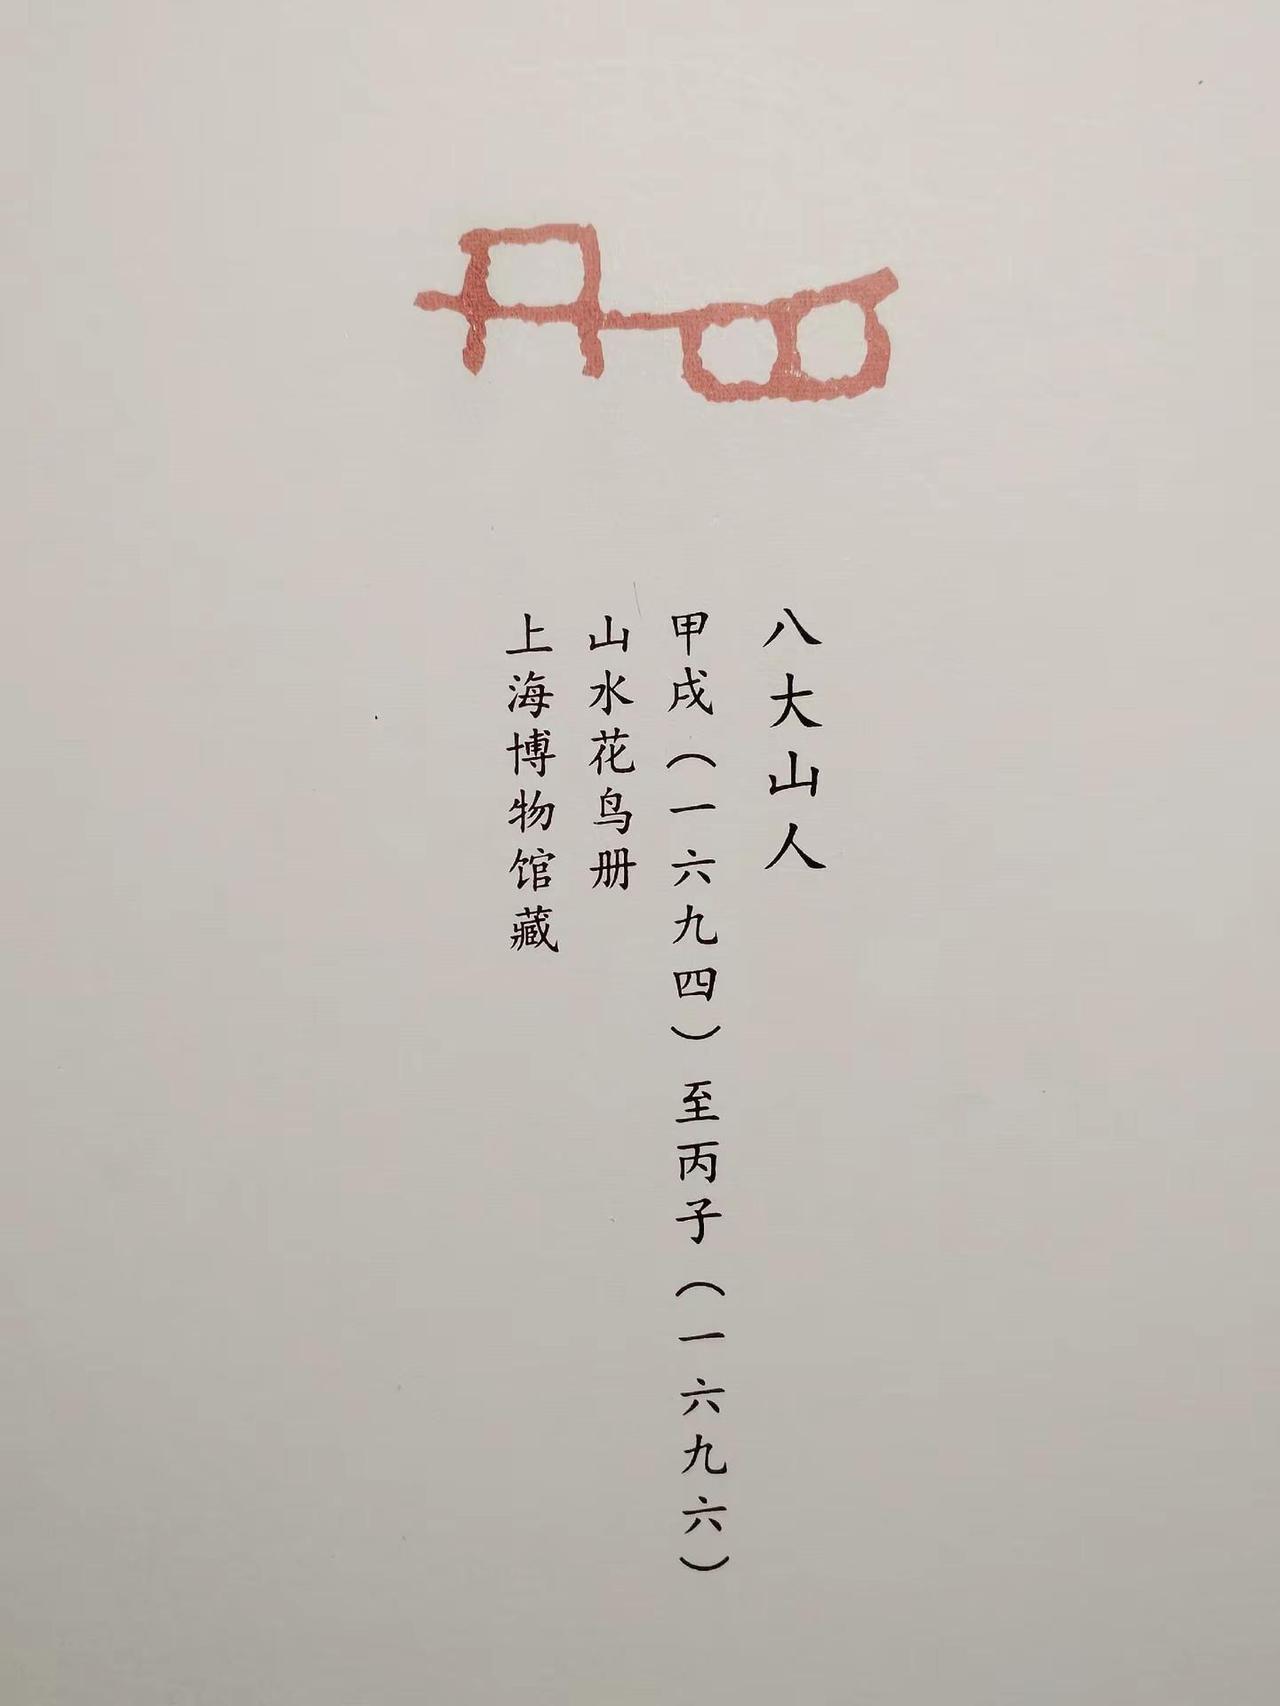 八大山人
甲戌（一六九四）至丙子（一六九六）
山水花鸟册
上海博物馆藏